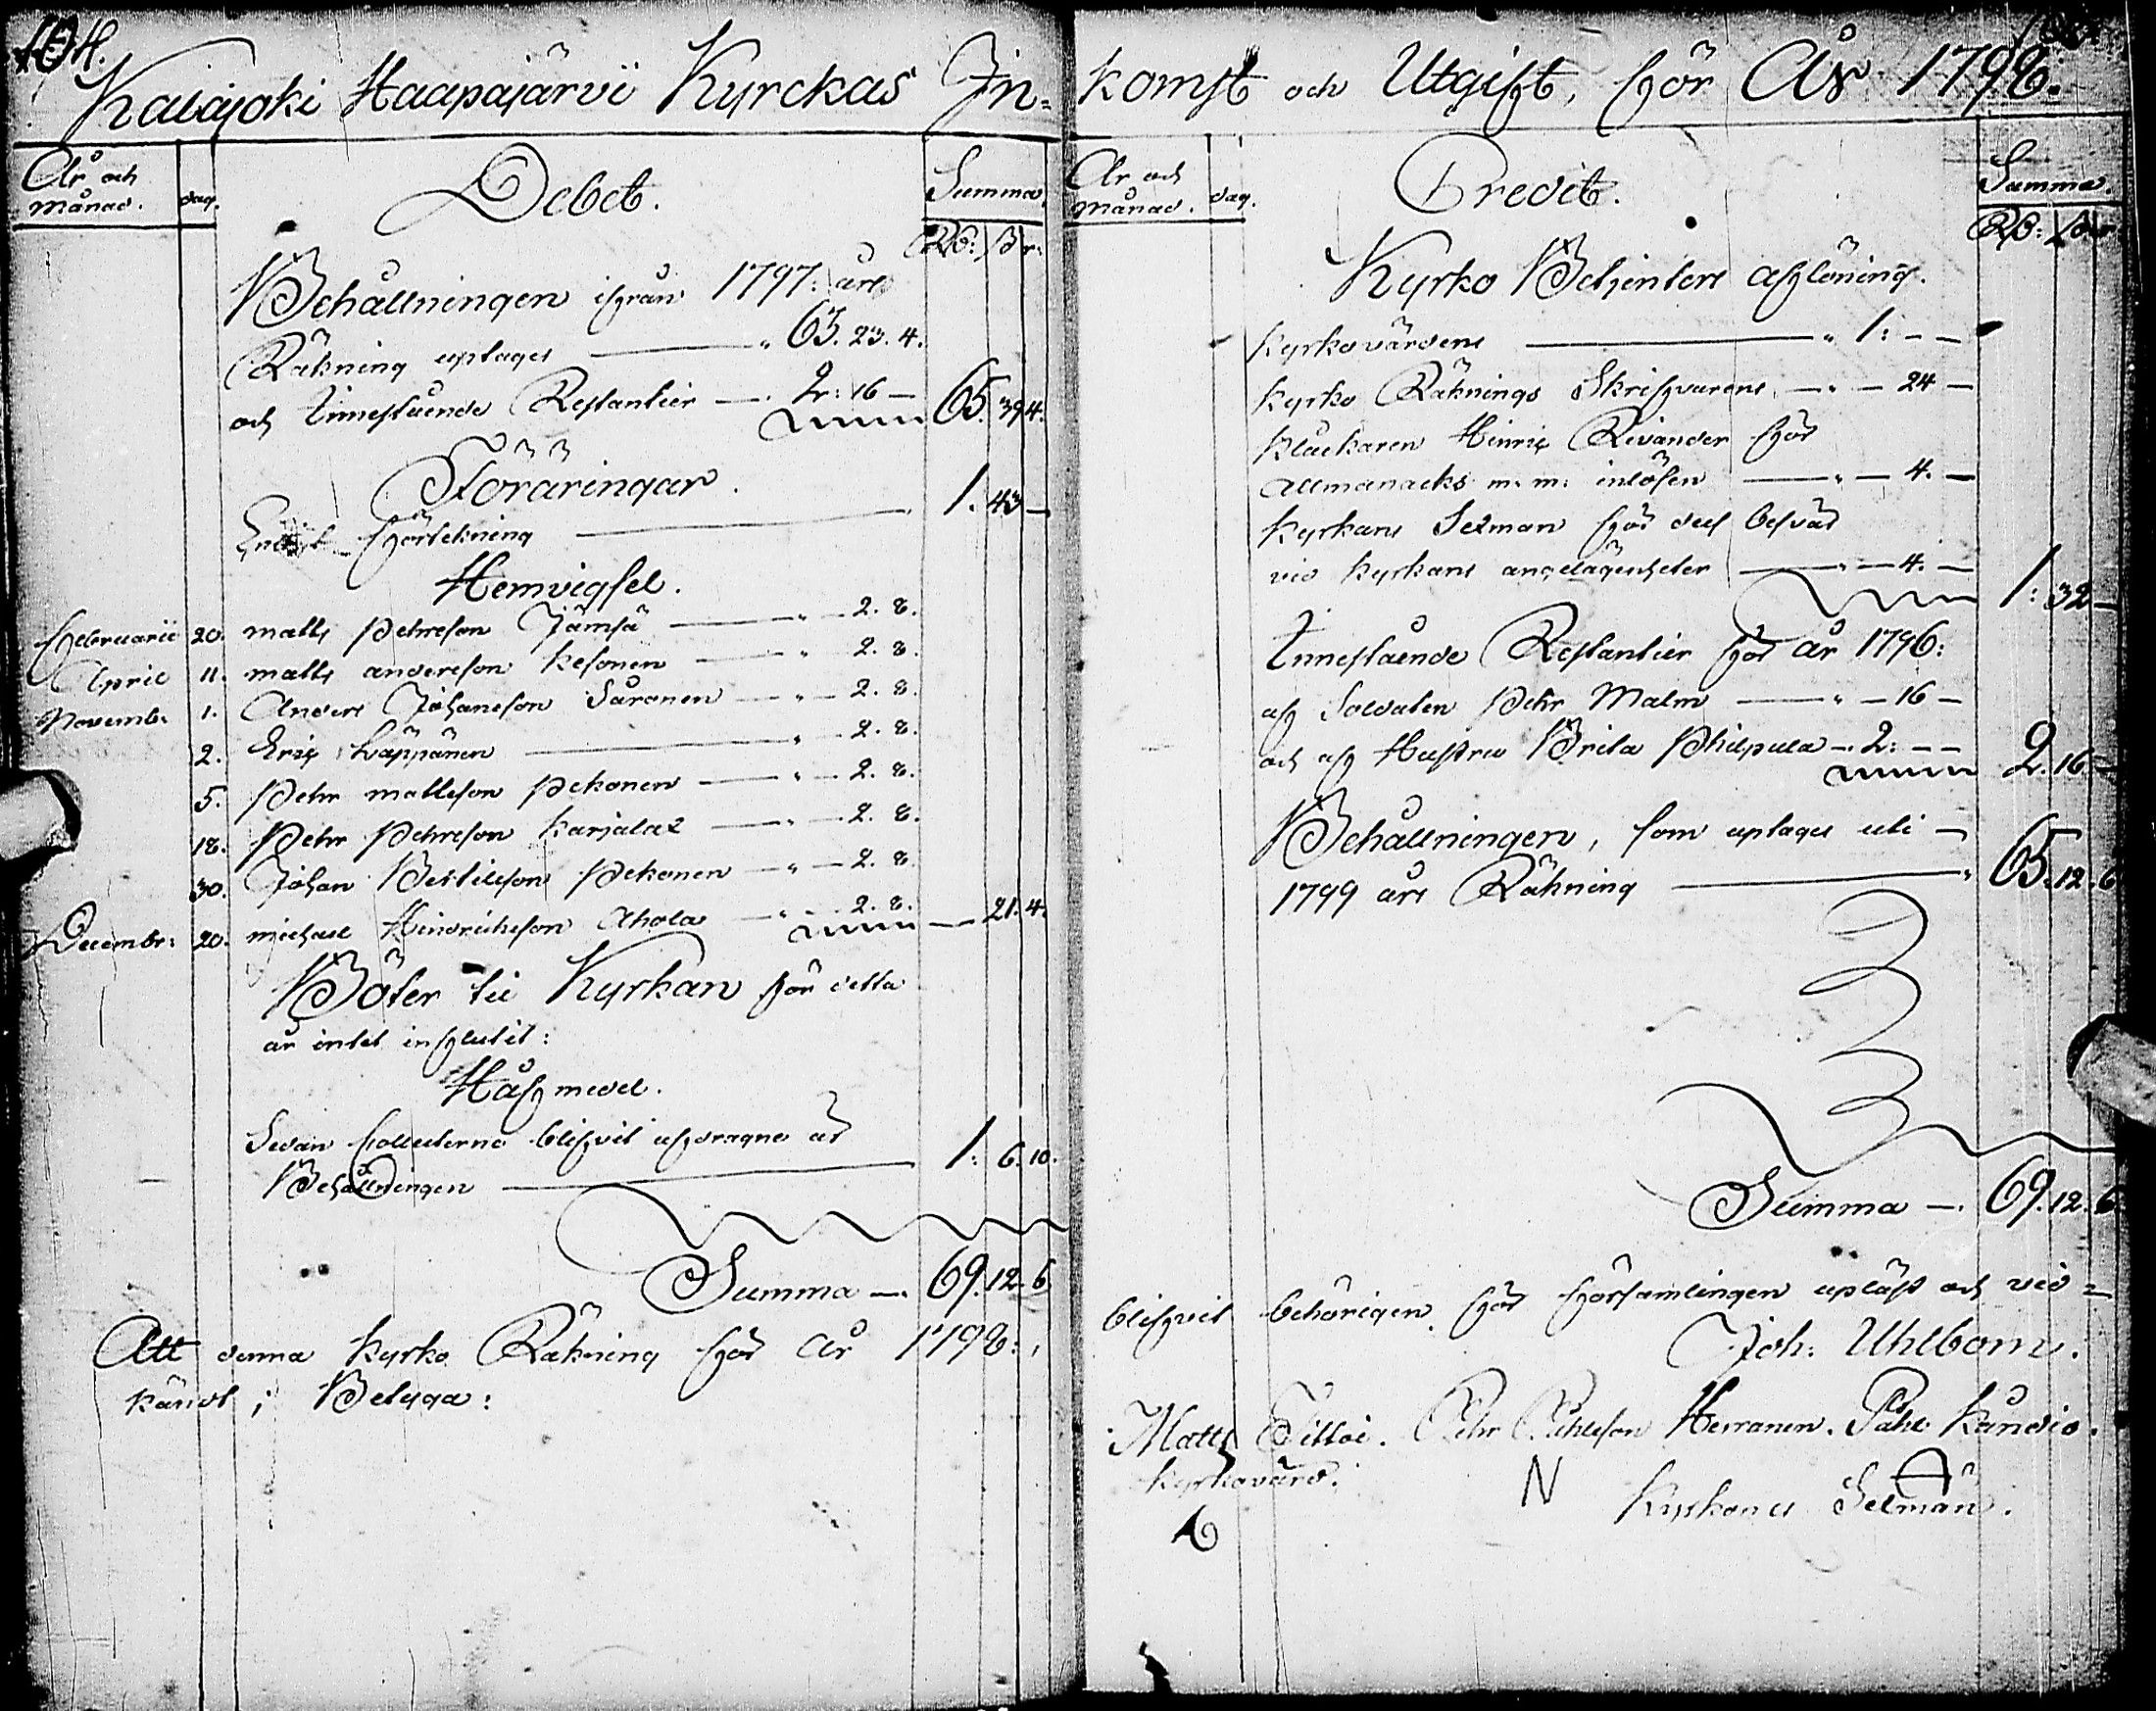 104.
Kalajoki Haapajärvi Kyrckas In=
År och
månad.
dag.
Debet.
Summa.
Rd: ß r:
Behållningen ifrån 1797: års
Räkning uptages — " 63. 23. 4.
och Innestående Restantier — . 2: 16 — 65. 39 4.
Föräringar.
Enligt förtekning — 1. 43 —
Hemvigsel.
Februarii 20. Matts Pehrsson Jämsä — " — 2. 8.
April 11. Matts Andersson Kesonen — " 2. 8.
Novembr. 1. Anders Johansson Saronen — " — 2. 8.
2. Eric Läppänen — " — 2. 8.
5. Pehr Mattsson Pekonen — " — 2. 8.
18. Pehr Pehrsson Karjala — " — 2. 8.
30. Johan Bertilsson Pekonen — " — 2. 8.
Decembr: 20. Michael Hindrichsson Ahola — " — 2. 8. — 21. 4.
Böter til Kyrkan för detta
år intet influtit:
Håfmedel.
Sedan Collecterne blifvit afdragne är
Behållningen — 1: 6. 10.
Summa — . 69. 12. 6
Att denna Kyrko Räkning för År 1798:,
kändt, Betyga:
komst och Utgift, för År 1798.
År och
månad.
dag.
Credit.
Summa.
Rd: ß r
Kyrko Betjenters aflöning.
Kyrkovärdens — " 1: — —
Kyrko Räknings Skrifvarens — " — 24 —
Klåckaren Hinric Rivander för
Allmanacks m. m. inlösen — " — 4. —
Kyrkans Sexman för des besvär
vid Kyrkans angelägenheter — " — 4. — 1: 32 —
Innestående Restantier för år 1796:
af Soldaten Pehr Malm — " — 16 —
och af Hustru Brita Philpula — . 2: — — 2. 16. —
Behållningen, som uptages uti —
1799 års Räkning — " 65. 12. 6
Summa — . 69. 12. 6
blifvit behörigen för församlingen upläst och ved=
Joh: Uhlbom.
Matts Tittoi. Pehr Pehrsson Herranen. Påhl Kandio.
Kyrkovärd. N
Kyrkones Sexmän.